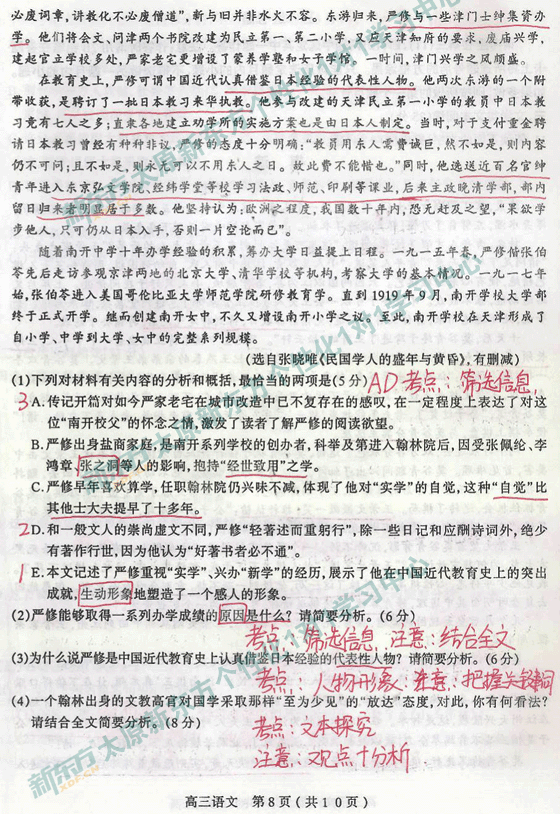 必废词章,讲教化不必废僧道”,新与旧并非水火不容。东游归来,严修与一些津门士绅集资办
学。他们将会文、问津两个书院改建为民立第一、第二小学,又应天津知府的要求,废庙兴学,
建起官立学校多处,严家老宅更增设了蒙养学塾和女子学馆。一时间,津门兴学之风颇盛。
在教育史上,严修可谓中国近代认真借鉴日本经验的代表性人物。他两次东游的一个附
带收获,是聘订了一批日本教习来华执教。他参与改建的天津民立第一小学的教员中日本教
习竟有七人之多;直隶各地建立劝学所的实施方案也是由日本人制定。当时,对于支付重金聘
请日本教习曾经有种种非议,严修的态度十分明确:“教员用东人需费诚巨,然不如是,则内容
仍不可问;且不如是,则永无可以不用东人之日。故此费不能惜也。”同时,他选送近百名官绅
青年进入东京弘文学院、经纬学堂等校学习法政、师范、印刷等课业,后来主政晚清学部,部内
留日归来者明显居于多数。他坚持认为:欧洲之程度,我国数十年内,恐无赶及之望,“果欲学
步他人,只可仍从日本入手,否则一片空论而已”。
随着南开中学十年办学经验的积累,筹办大学日益提上日程。一九一五年春,严修偕张伯
苓先后走访参观京津两地的北京大学、清华学校等机构,考察大学的基本情况。一九一七年
始,张伯苓进入美国哥伦比亚大学师范学院研修教育学。直到1919年9月,南开学校大学部
终于正式开学。继而创建南开女中,不久又增设南开小学之议。至此,南开学校在天津形成了
自小学、中学到大学、女中的完整系列规模。
(选自张晓唯《民国学人的盛年与黄昏》,有删减)
(1)下列对材料有关内容的分析和概括,最恰当的两项是(5分) AD 考点:筛选信息
3 A.传记开篇对如今严家老宅在城市改造中已不复存在的感叹,在一定程度上表达了对这
位“南开校父”的怀念之情,激发了读者了解严修的阅读欲望。
B.严修出身盐商家庭,是南开系列学校的创办者,科举及第进入翰林院后,因受张佩纶、李
鸿章、张之洞等人的影响,抱持“经世致用”之学。
C.严修早年喜欢算学,任职翰林院仍兴味不减,体现了他对“实学”的自觉,这种“自觉”比
其他士大夫提早了十多年。
2 D.和一般文人的崇尚虚文不同,严修“轻著述而重躬行”,除一些日记和应酬诗词外,绝少
有著作行世,因为他认为“好著书者必不通”。
1 E.本文记述了严修重视“实学”、兴办“新学”的经历,展示了他在中国近代教育史上的突出
成就,生动形象地塑造了一个感人的形象。
(2)严修能够取得一系列办学成绩的原因是什么?请简要分析。(6分)
考点:筛选信息 注意:结合全文
(3)为什么说严修是中国近代教育史上认真借鉴日本经验的代表性人物?请简要分析。(6分)
考点:人物形象 注意:把握关键词
(4)一个翰林出身的文教高官对国学采取那样“至为少见”的“放达”态度,对此,你有何看法?
请结合全文简要分析。(8分)
考点:文本探究
注意:观点+分析
新东方太原新东方个性化1对1学习中心
XDF.CN
高三语文 第8页(共10页)